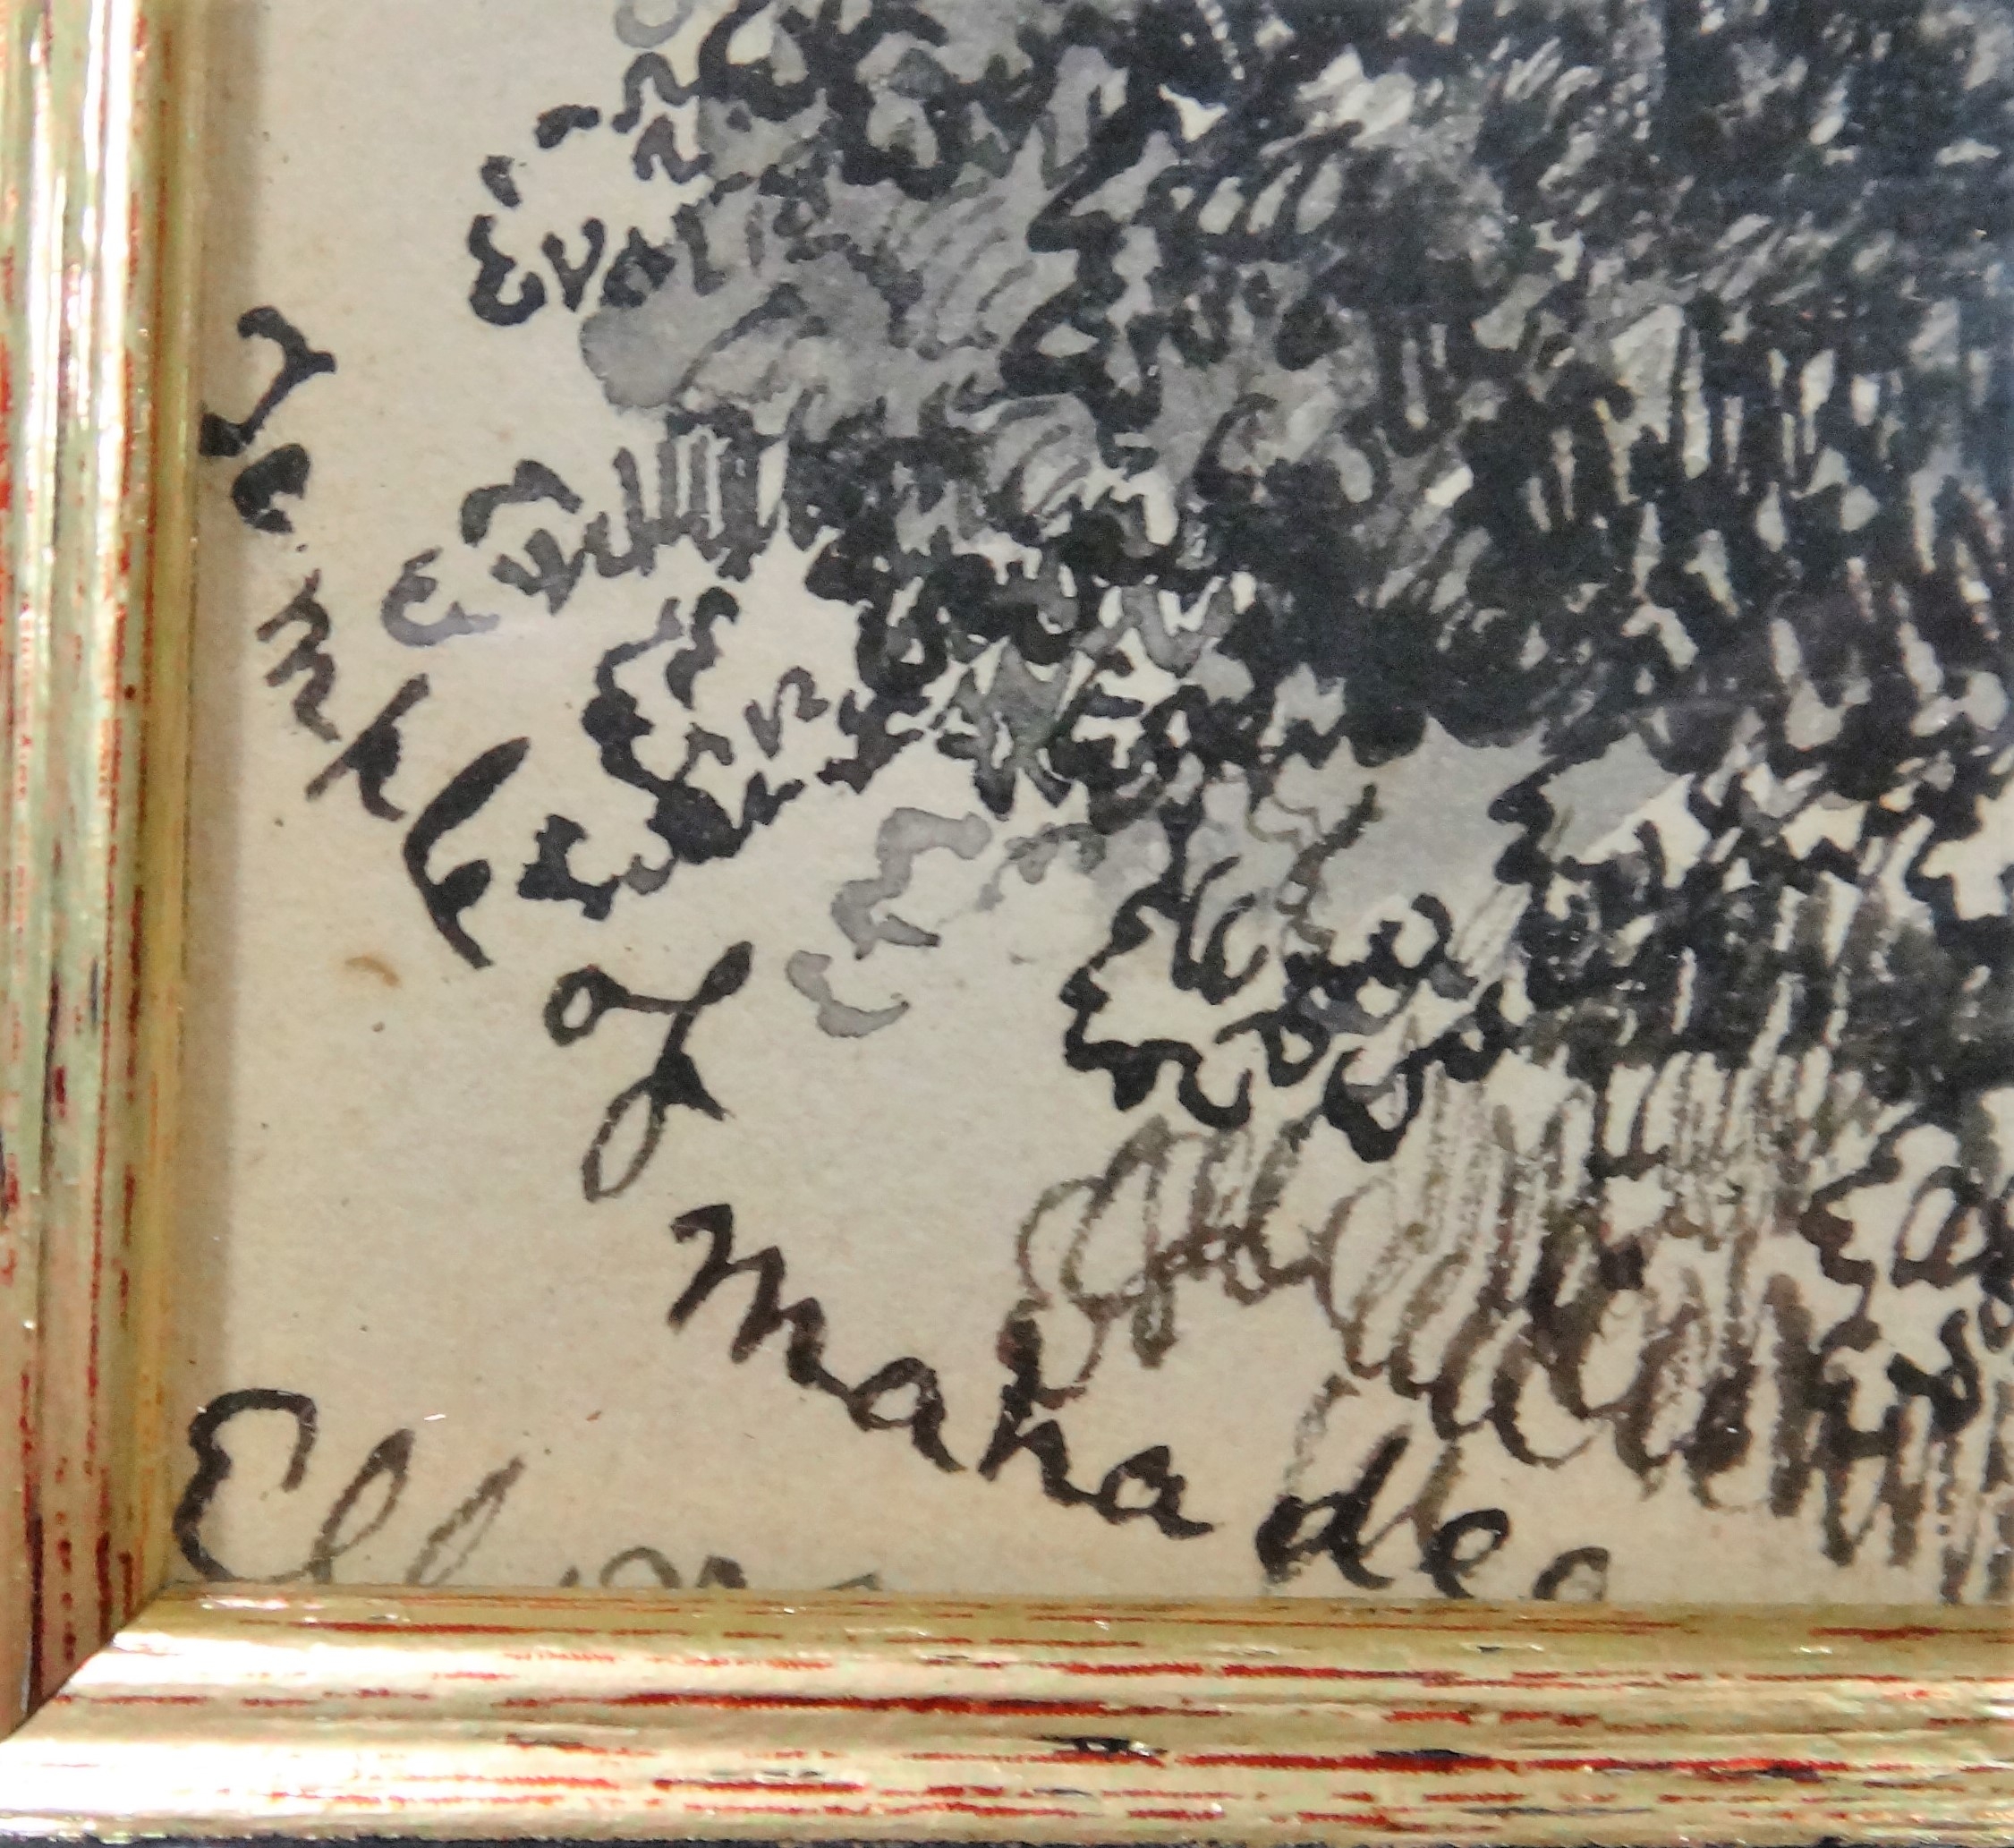 Temple of Mahadeo
Ellora